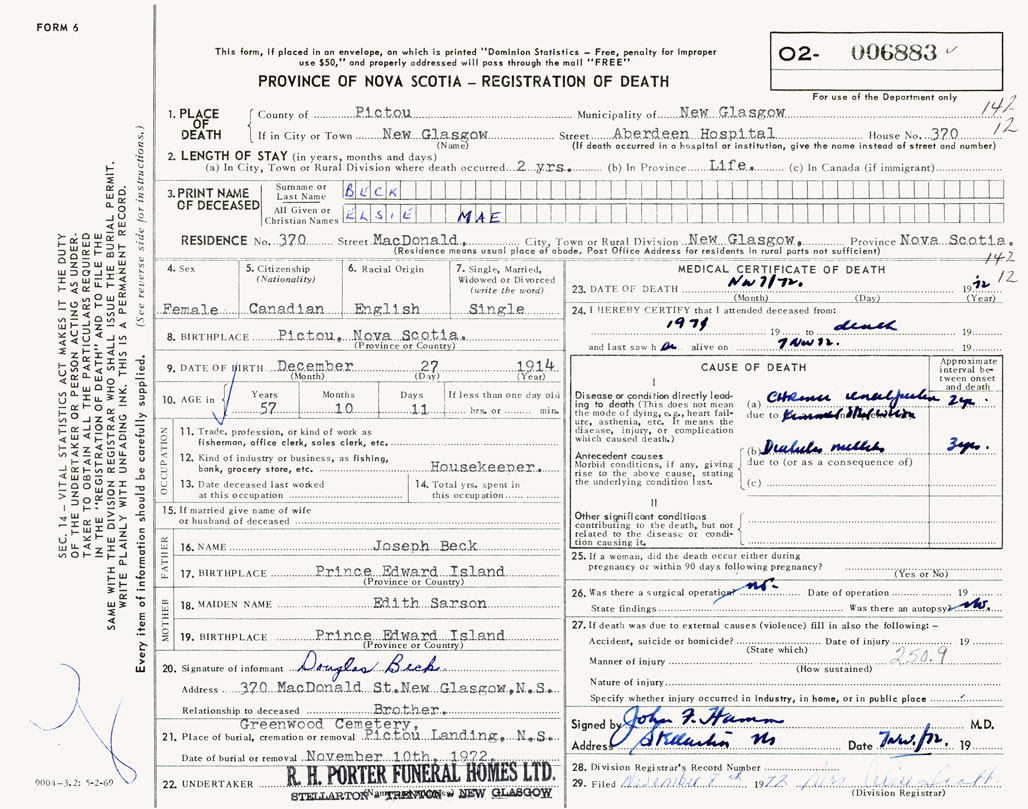 FORM 6
This form, if placed in an envelope, on which is printed "Dominion Statistics – Free, penalty for improper
use $50," and properly addressed will pass through the mail "FREE"
PROVINCE OF NOVA SCOTIA – REGISTRATION OF DEATH
O2- 006883
For use of the Department only
142
12
SEC. 14 – VITAL STATISTICS ACT MAKES IT THE DUTY
OF THE UNDERTAKER OR PERSON ACTING AS UNDER-
TAKER TO OBTAIN ALL THE PARTICULARS REQUIRED
IN THE "REGISTRATION OF DEATH" AND TO FILE THE
SAME WITH THE DIVISION REGISTRAR WHO SHALL ISSUE THE BURIAL PERMIT.
WRITE PLAINLY WITH UNFADING INK. THIS IS A PERMANENT RECORD.
Every item of information should be carefully supplied. (See reverse side for instructions.)
1. PLACE OF DEATH
County of Pictou Municipality of New Glasgow
If in City or Town New Glasgow Street Aberdeen Hospital House No. 370
(Name) (If death occurred in a hospital or institution, give the name instead of street and number)
2. LENGTH OF STAY (in years, months and days)
(a) In City, Town or Rural Division where death occurred 2 yrs. (b) In Province Life. (c) In Canada (if immigrant)
3. PRINT NAME OF DECEASED
Surname or Last Name BECK
All Given or Christian Names ELSIE MAE
RESIDENCE No. 370 Street MacDonald, City, Town or Rural Division New Glasgow, Province Nova Scotia.
(Residence means usual place of abode. Post Office Address for residents in rural parts not sufficient)
142
12
4. Sex
Female
5. Citizenship
(Nationality)
Canadian
6. Racial Origin
English
7. Single, Married,
Widowed or Divorced
(write the word)
Single
8. BIRTHPLACE Pictou, Nova Scotia.
(Province or Country)
9. DATE OF BIRTH December 27 1914
(Month) (Day) (Year)
10. AGE in Years Months Days If less than one day old
57 10 11 hrs. or min.
OCCUPATION
11. Trade, profession, or kind of work as
fisherman, office clerk, sales clerk, etc.
12. Kind of industry or business, as fishing,
bank, grocery store, etc. Housekeeper.
13. Date deceased last worked
at this occupation
14. Total yrs. spent in
this occupation
15. If married give name of wife
or husband of deceased
FATHER
16. NAME Joseph Beck
17. BIRTHPLACE Prince Edward Island
(Province or Country)
MOTHER
18. MAIDEN NAME Edith Sarson
19. BIRTHPLACE Prince Edward Island
(Province or Country)
20. Signature of informant Douglas Beck
Address 370 MacDonald St. New Glasgow, N.S.
Relationship to deceased Brother.
Greenwood Cemetery,
21. Place of burial, cremation or removal Pictou Landing, N.S.
Date of burial or removal November 10th, 1972.
22. UNDERTAKER R. H. PORTER FUNERAL HOMES LTD.
STELLARTON - TRENTON - NEW GLASGOW
9004-3.2: 5-2-69
MEDICAL CERTIFICATE OF DEATH
23. DATE OF DEATH Nov 7/72. 19 72
(Month) (Day) (Year)
24. I HEREBY CERTIFY that I attended deceased from:
19 to death 19
and last saw h alive on 7 Nov 72. 19
CAUSE OF DEATH
Approximate
interval be-
tween onset
and death
I
Disease or condition directly lead-
ing to death (This does not mean
the mode of dying, e.g., heart fail-
ure, asthenia, etc. It means the
disease, injury, or complication
which caused death.)
(a) Chronic 2 yr.
due to
Antecedent causes
Morbid conditions, if any, giving
rise to the above cause, stating
the underlying condition last.
(b) Diabetes mellitus 3 yrs.
due to (or as a consequence of)
(c)
II
Other significant conditions
contributing to the death, but not
related to the disease or condi-
tion causing it.
25. If a woman, did the death occur either during
pregnancy or within 90 days following pregnancy?
(Yes or No)
26. Was there a surgical operation? no. Date of operation 19
State findings Was there an autopsy? no.
27. If death was due to external causes (violence) fill in also the following: –
Accident, suicide or homicide? Date of injury 19
(State which)
250.9
Manner of injury
(How sustained)
Nature of injury
Specify whether injury occurred in industry, in home, or in public place
Signed by John F. Hamm M.D.
Address Stellarton NS Date 7 Nov/72. 19
28. Division Registrar's Record Number
29. Filed November 8th 1972 Mrs.
(Division Registrar)